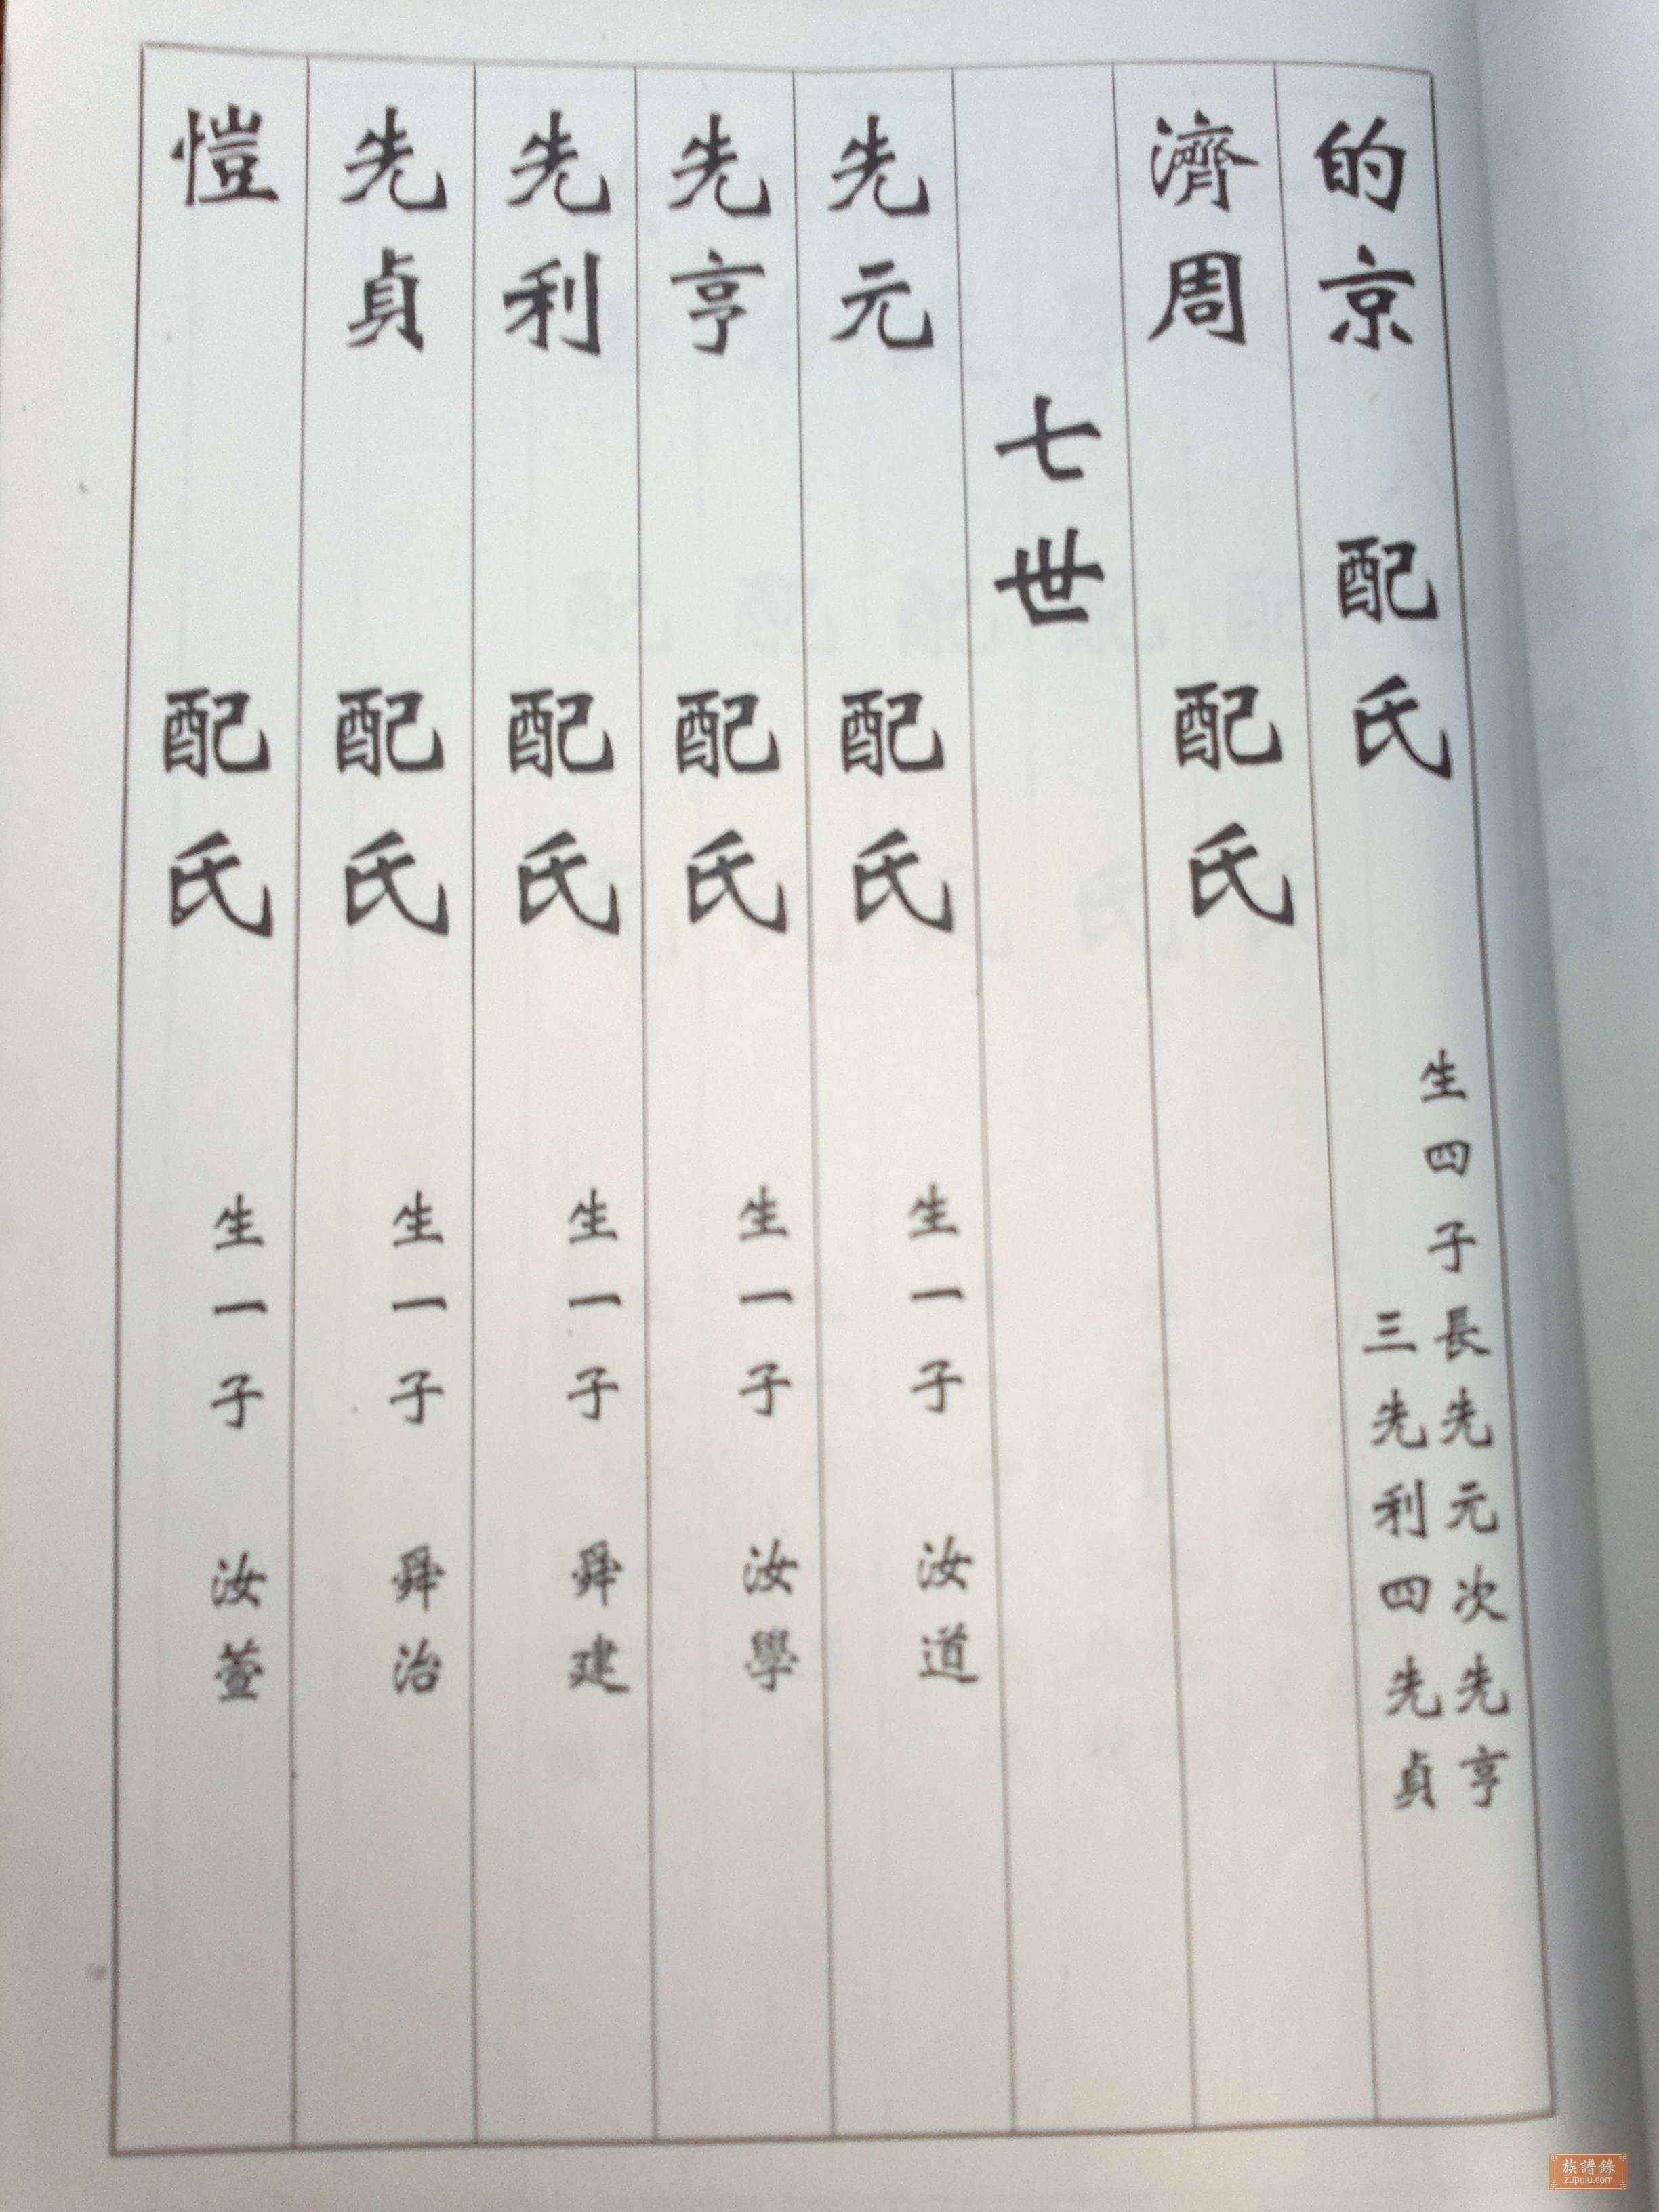 的京 配氏 生四子長先元次先亨三先利四先貞
濟周 配氏
七世
先元 配氏 生一子 汝道
先亨 配氏 生一子 汝學
先利 配氏 生一子 舜建
先貞 配氏 生一子 舜治
愷 配氏 生一子 汝萱
族譜錄
zupulu.com